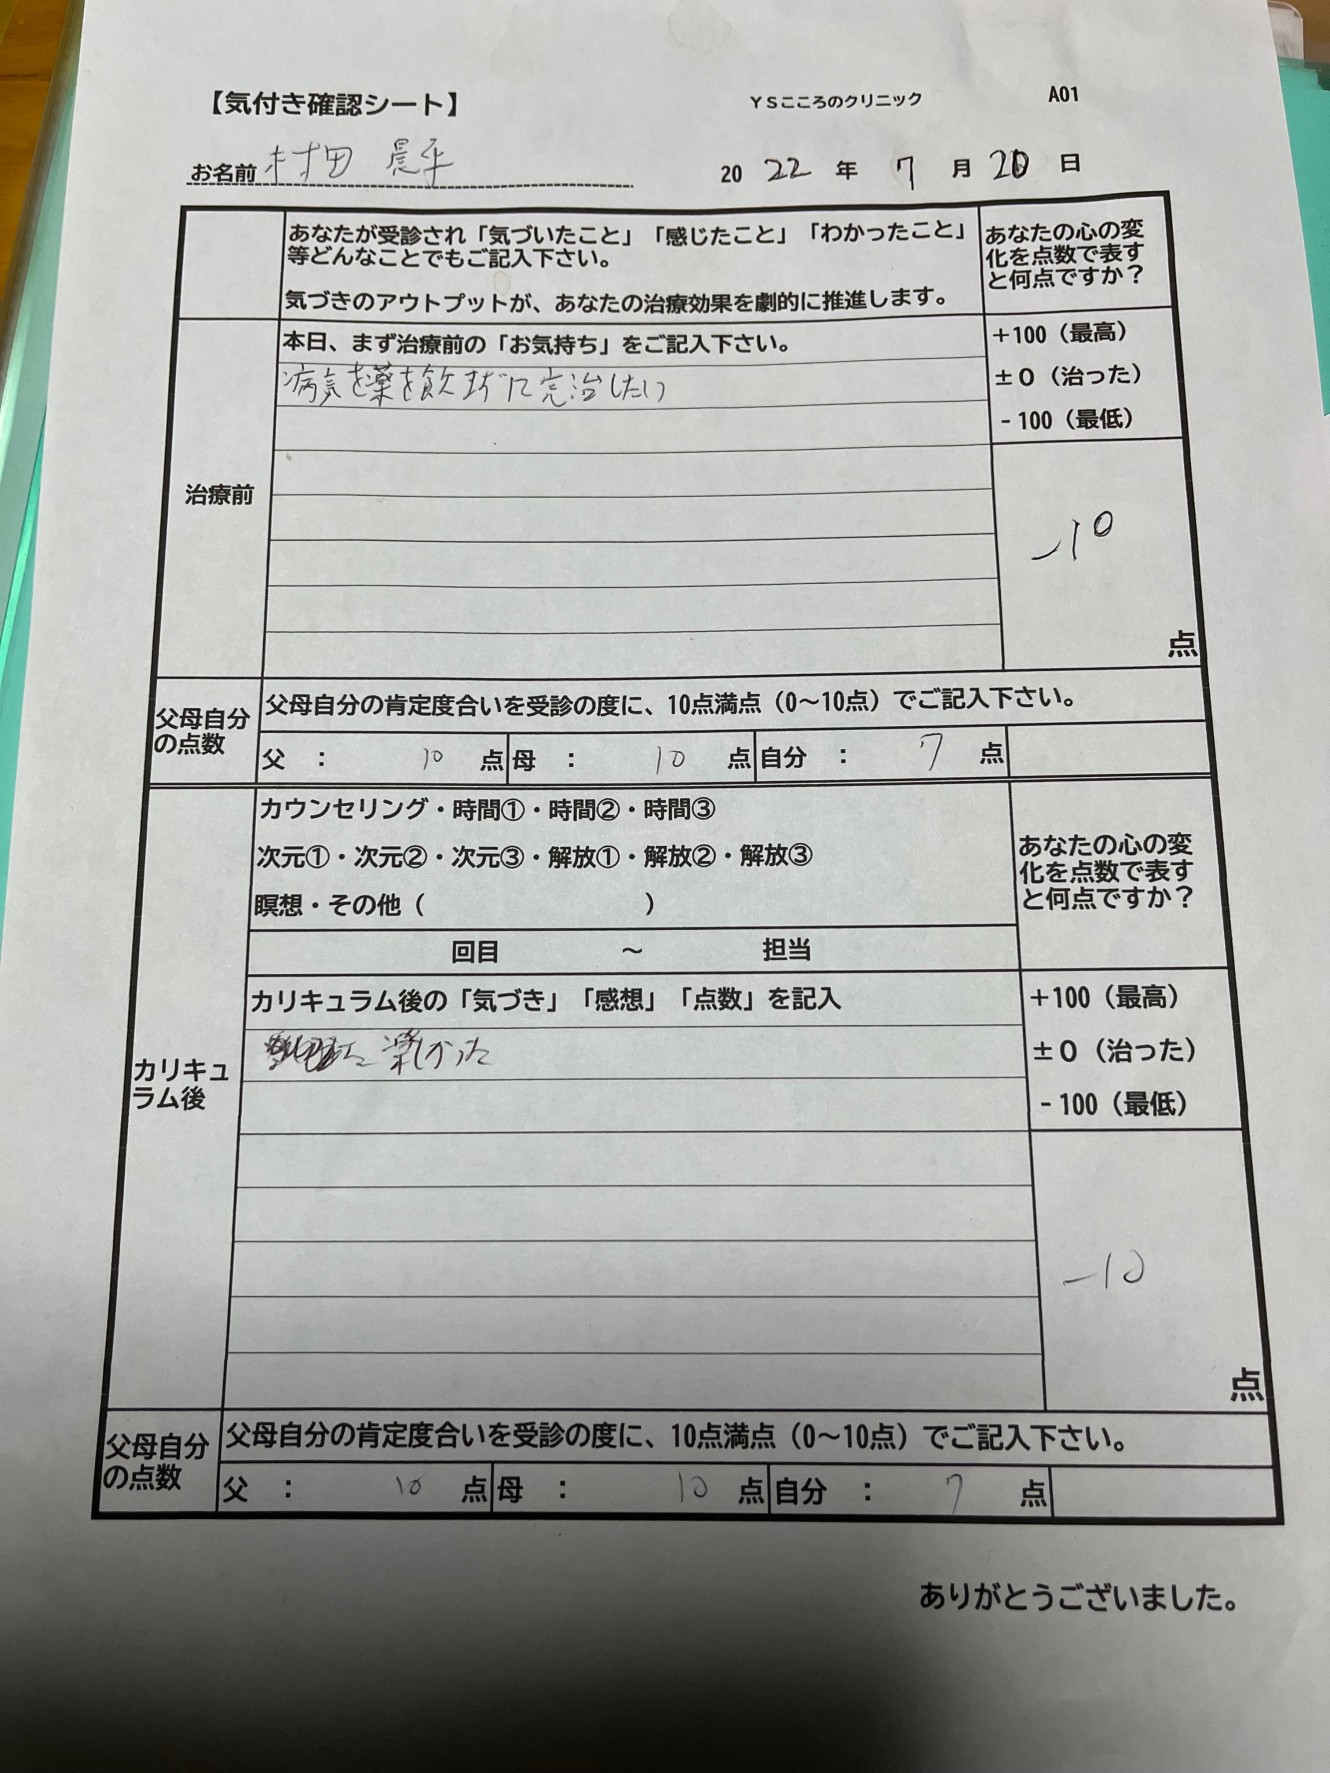 【気付き確認シート】 YSこころのクリニック A01
お名前 村田 晨平 2022年 7月 20日
あなたが受診され「気づいたこと」「感じたこと」「わかったこと」
等どんなことでもご記入下さい。
気づきのアウトプットが、あなたの治療効果を劇的に推進します。
あなたの心の変
化を点数で表す
と何点ですか？
治療前
本日、まず治療前の「お気持ち」をご記入下さい。
病気を薬を飲まずに完治したい
+100（最高）
±0（治った）
-100（最低）
-10
点
父母自分
の点数
父母自分の肯定度合いを受診の度に、10点満点（0～10点）でご記入下さい。
父 ： 10 点 母 ： 10 点 自分 ： 7 点
カリキュ
ラム後
カウンセリング・時間①・時間②・時間③
次元①・次元②・次元③・解放①・解放②・解放③
瞑想・その他（ ）
回目 ～ 担当
あなたの心の変
化を点数で表す
と何点ですか？
カリキュラム後の「気づき」「感想」「点数」を記入
楽しかった
+100（最高）
±0（治った）
-100（最低）
-10
点
父母自分
の点数
父母自分の肯定度合いを受診の度に、10点満点（0～10点）でご記入下さい。
父 ： 10 点 母 ： 10 点 自分 ： 7 点
ありがとうございました。